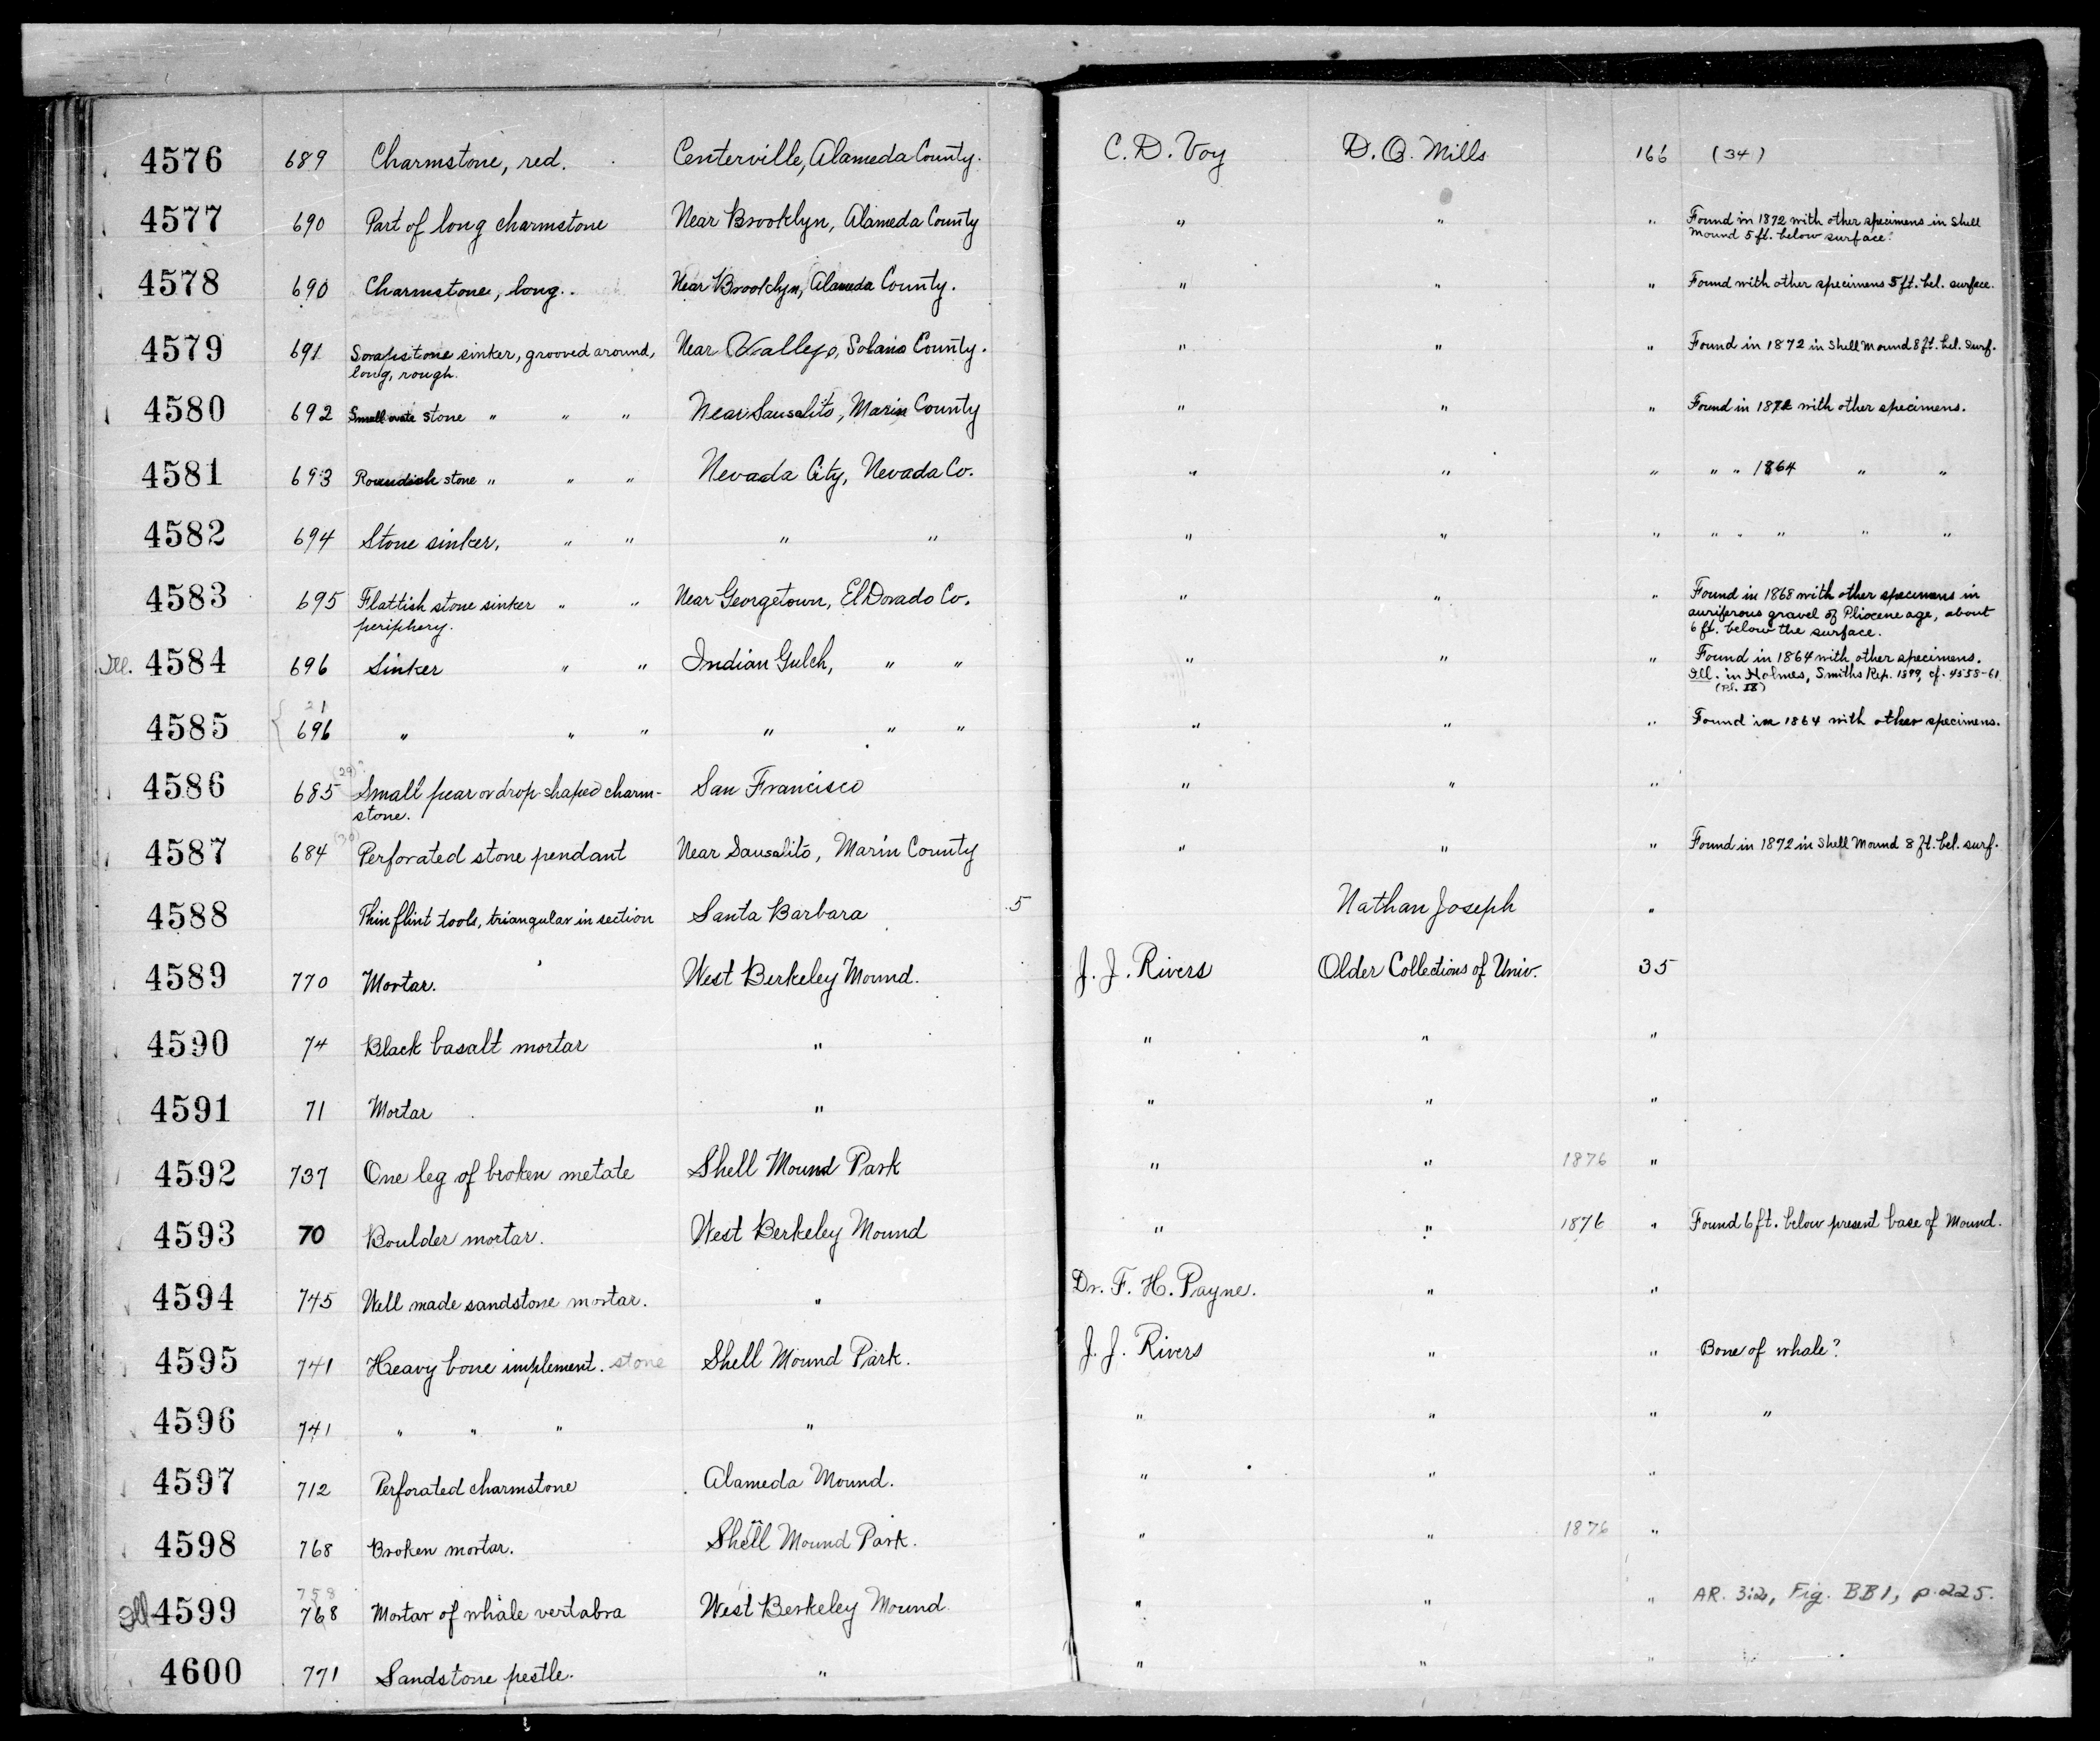 4576 689 Charmstone, red. Centerville, Alameda County. C. D. Voy D. O. Mills 166 (34)
4577 690 Part of long charmstone Near Brooklyn, Alameda County " " " Found in 1872 with other specimens in Shell
Mound 5 ft. below surface.
4578 690 Charmstone, long. Near Brooklyn, Alameda County. " " " Found with other specimens 5 ft. bel. surface.
4579 691 Soapstone sinker, grooved around, Near Vallejo, Solano County. " " " Found in 1872 in Shell Mound 8 ft. bel. surf.
long, rough.
4580 692 Small ovate stone " " " Near Sausalito, Marin County " " " Found in 1872 with other specimens.
4581 693 Roundish stone " " " Nevada City, Nevada Co. " " " " " 1864 " "
4582 694 Stone sinker, " " " " " " " " " " " "
4583 695 Flattish stone sinker " " Near Georgetown, El Dorado Co. " " " Found in 1868 with other specimens in
periphery. auriferous gravel of Pliocene age, about
6 ft. below the surface.
Ill. 4584 696 Sinker " " Indian Gulch, " " " " " Found in 1864 with other specimens.
Ill. in Holmes, Smiths Rep. 1899, cf. 4558-61
(Pl. IX)
21
4585 696 " " " " " " " " " Found in 1864 with other specimens.
(29)?
4586 685 Small pear or drop-shaped charm- San Francisco " " "
stone.
(30)
4587 684 Perforated stone pendant Near Sausalito, Marin County " " " Found in 1872 in Shell Mound 8 ft. bel. surf.
4588 Thin flint tools, triangular in section Santa Barbara 5 Nathan Joseph "
4589 770 Mortar. West Berkeley Mound. J. J. Rivers Older Collections of Univ. 35
4590 74 Black basalt mortar " " " "
4591 71 Mortar " " " "
4592 737 One leg of broken metate Shell Mound Park " " 1876 "
4593 70 Boulder mortar. West Berkeley Mound " " 1876 " Found 6 ft. below present base of Mound.
4594 745 Well made sandstone mortar. " Dr. F. H. Payne. " "
4595 741 Heavy bone implement. stone Shell Mound Park. J. J. Rivers " " Bone of whale?
4596 741 " " " " " " " "
4597 712 Perforated charmstone Alameda Mound. " " "
4598 768 Broken mortar. Shell Mound Park. " " 1876 "
758
Ill 4599 768 Mortar of whale vertabra West Berkeley Mound. " " " AR. 3:2, Fig. BB1, p. 225.
4600 771 Sandstone pestle. " " " "